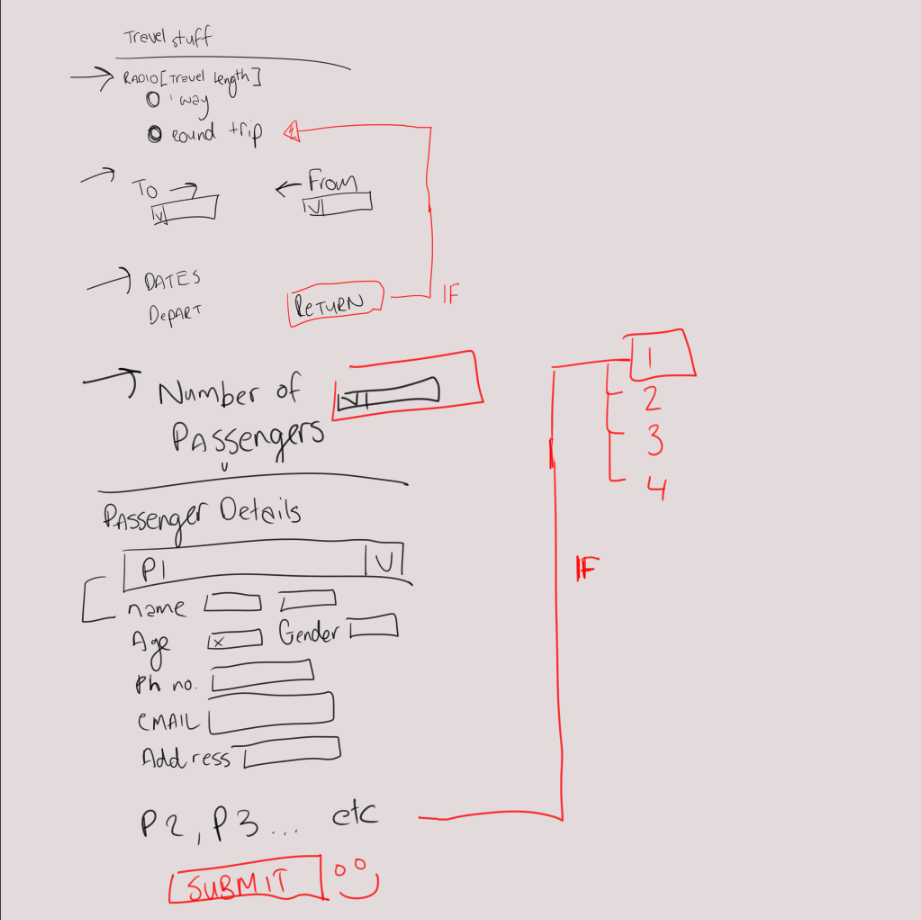 Travel stuff
RADIO[Travel length]
1 way
round trip
To From
DATES
DEPART RETURN IF
Number of
PAssengers
1
2
3
4
PAssenger Details
P1
IF
name
Age x Gender
Ph no.
EMAIL
Address
P2, P3... etc
SUBMIT